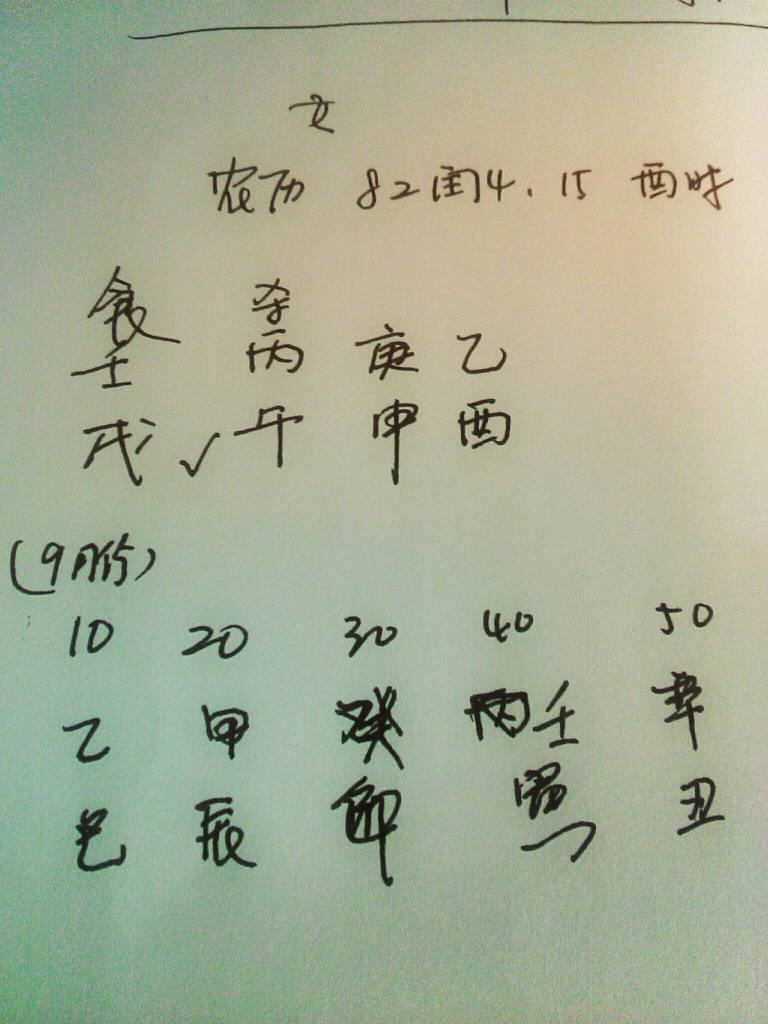 女
农历 82闰4.15 酉时
食 杀
壬 丙 庚 乙
戌 ✓ 午 申 酉
(9月份)
10 20 30 40 50
乙 甲 癸 壬 辛
巳 辰 卯 丑